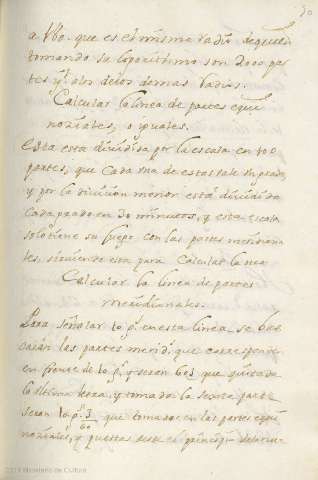 50
a V60. que es el mismo radio de quien
tomando su logarithmo son 2000 par
tes y los de los demas radios.
Calcular la linea de partes equi
noxiales, o iguales.
Esta esta dividida por la escala en 100
partes, que cada una de estas vale un grado,
y por la division menor está dividida
cada grado en 30 minutos, y esta escala
solo tiene su juego con las partes meridiona
les, siguiendo esta para calcular la
Calcular la linea de partes
meridionales.
Para señalar 10 gs. en esta linea se bus
carán las partes merids. que corresponden
en frente de 10 gs. y seran 603 que quitada
la ultima letra, y tomada la sexta parte
seran 10 gs. 3/60 que tomados en las partes equi
noxiales, y puestas desde el principio
©2019 Ministerio de Cultura